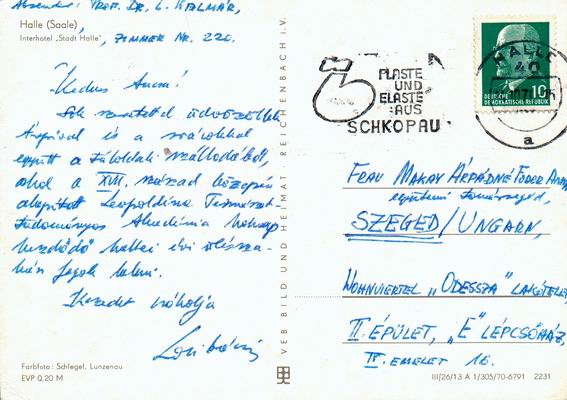 Absender: Prof. Dr. L. Kalmár,
Halle (Saale)
Interhotel „Stadt Halle"
, Zimmer Nr. 220.
Kedves Anna!
Sok szeretettel üdvözöllek
Árpáddal és a srácokkal
együtt a túloldali szállodából,
ahol a XVII. század közepén
alapított Leopoldina Természet-
tudományos Akadémia holnap
kezdődő hallei évi ülésza-
kán fogok lakni.
Kezedet csókolja
Laci bácsi
Farbfoto: Schlegel, Lunzenau
EVP 0,20 M
VEB BILD UND HEIMAT REICHENBACH i. V.
PLASTE
UND
ELASTE
AUS
SCHKOPAU
HALLE
40
a
DEUTSCHE
DEMOKRATISCHE REPUBLIK
10
Frau Makay Árpádné Fodor Anna
egyetemi tanársegéd,
SZEGED/UNGARN,
Wohnviertel „Odessza" lakótelep
II. ÉPÜLET, „E" LÉPCSŐHÁZ,
IV. EMELET 16.
III/26/13 A 1/305/70-6791 2231